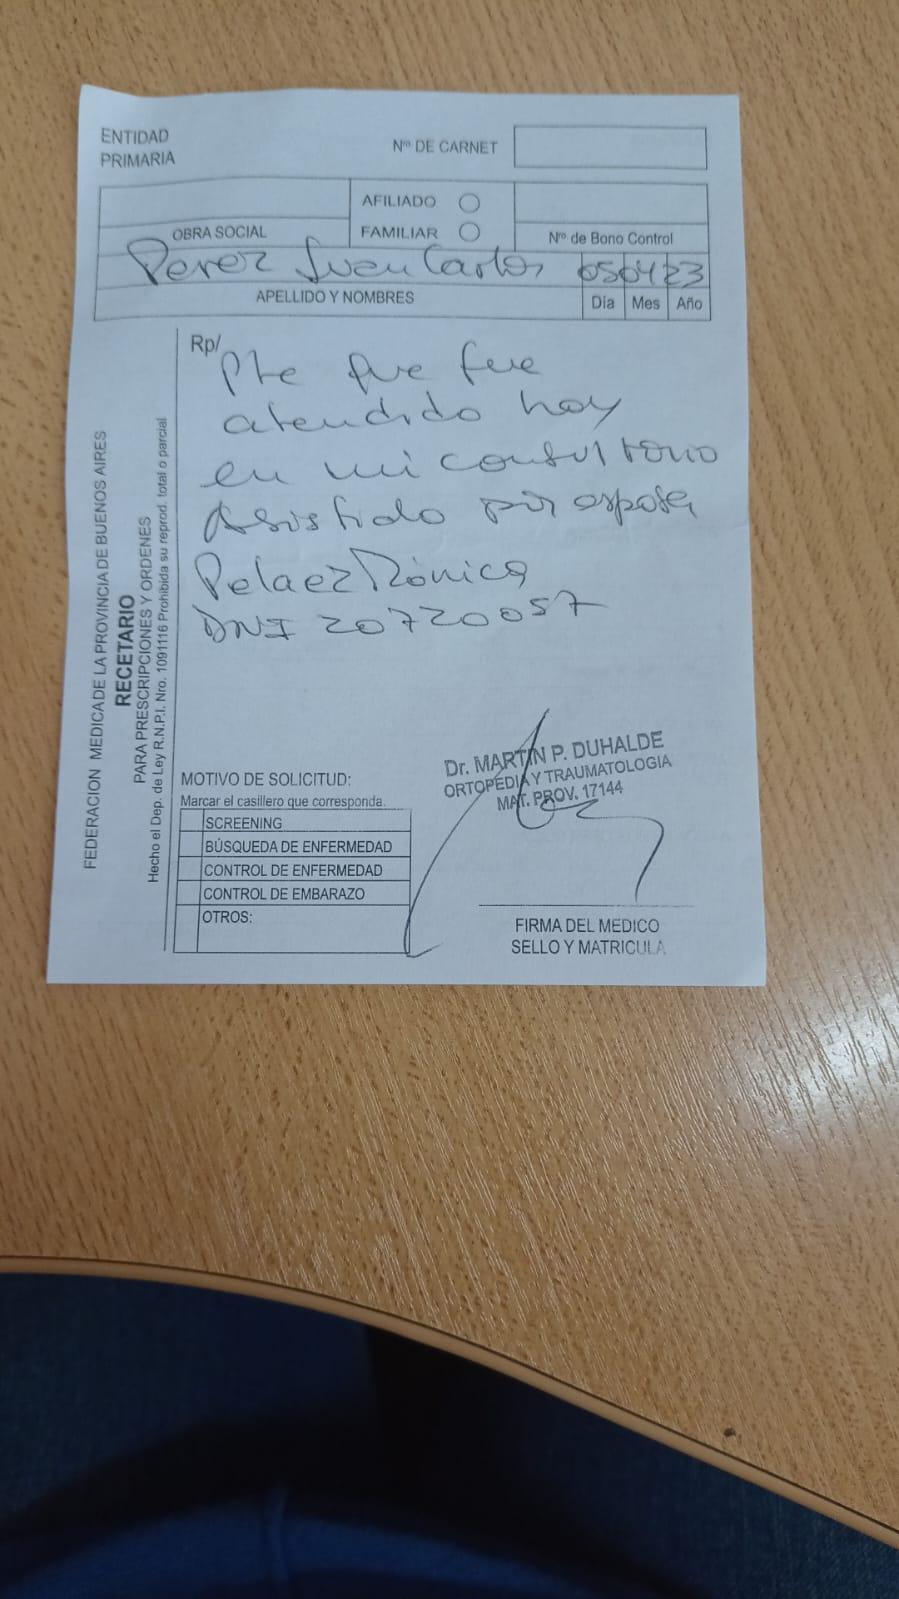 ENTIDAD
PRIMARIA
Nº DE CARNET
AFILIADO
FAMILIAR
OBRA SOCIAL
Nº de Bono Control
Perez Juan Carlos 05 04 23
APELLIDO Y NOMBRES
Día Mes Año
Rp/
Pte que fue
atendido hoy
en mi consultorio
Asistido por esposa
Pelaez Mónica
DNI 20720057
FEDERACION MEDICA DE LA PROVINCIA DE BUENOS AIRES
RECETARIO
PARA PRESCRIPCIONES Y ORDENES
Hecho el Dep. de Ley R.N.P.I. Nro. 1091116 Prohibida su reprod. total o parcial
MOTIVO DE SOLICITUD:
Marcar el casillero que corresponda.
SCREENING
BÚSQUEDA DE ENFERMEDAD
CONTROL DE ENFERMEDAD
CONTROL DE EMBARAZO
OTROS:
Dr. MARTIN P. DUHALDE
ORTOPEDIA Y TRAUMATOLOGIA
MAT. PROV. 17144
FIRMA DEL MEDICO
SELLO Y MATRICULA